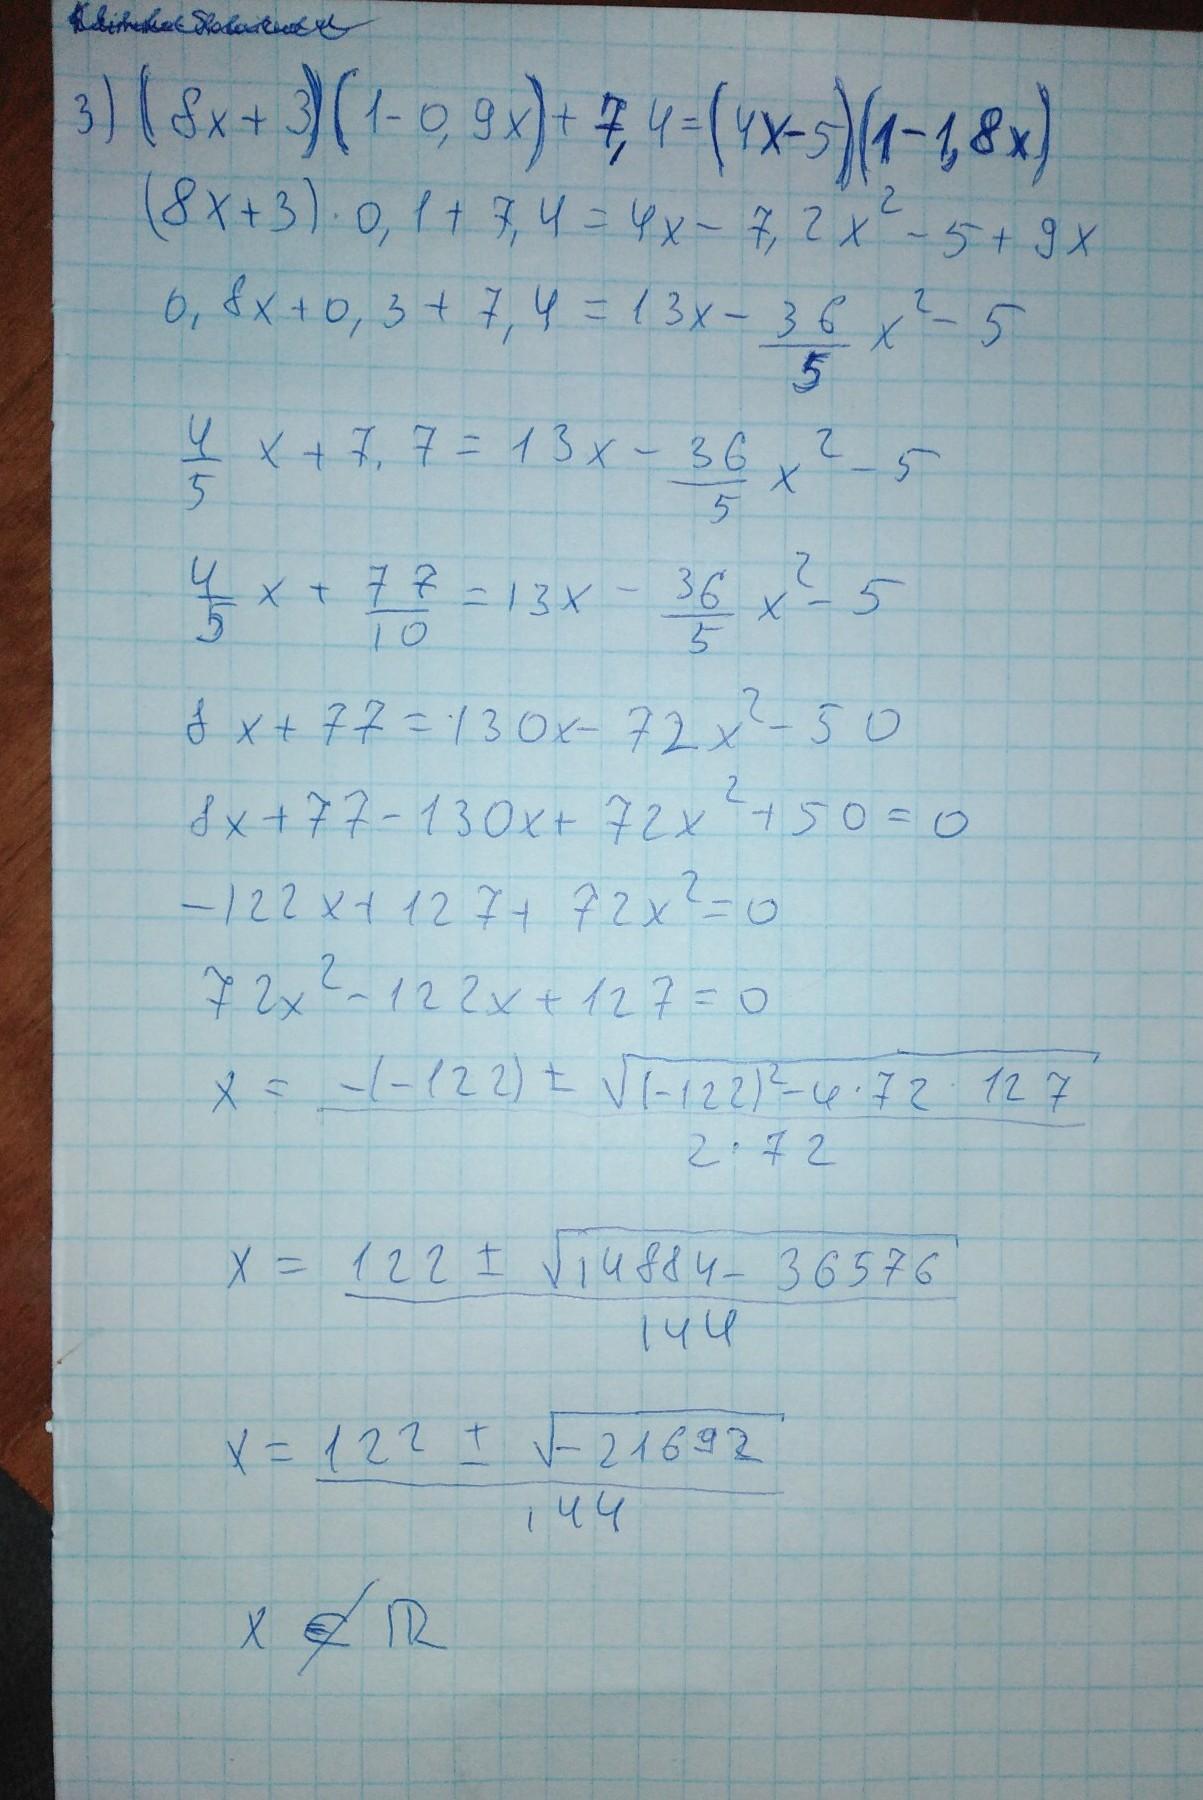 3) (8x+3)(1-0,9x)+7,4=(4x-5)(1-1,8x)
(8x+3)·0,1+7,4=4x-7,2x²-5+9x
0,8x+0,3+7,4=13x-36/5x²-5
4/5x+7,7=13x-36/5x²-5
4/5x+77/10=13x-36/5x²-5
8x+77=130x-72x²-50
8x+77-130x+72x²+50=0
-122x+127+72x²=0
72x²-122x+127=0
x=-(-122)±√(-122)²-4·72·127/2·72
x=122±√14884-36576/144
x=122±√-21692/144
x∉ℝ